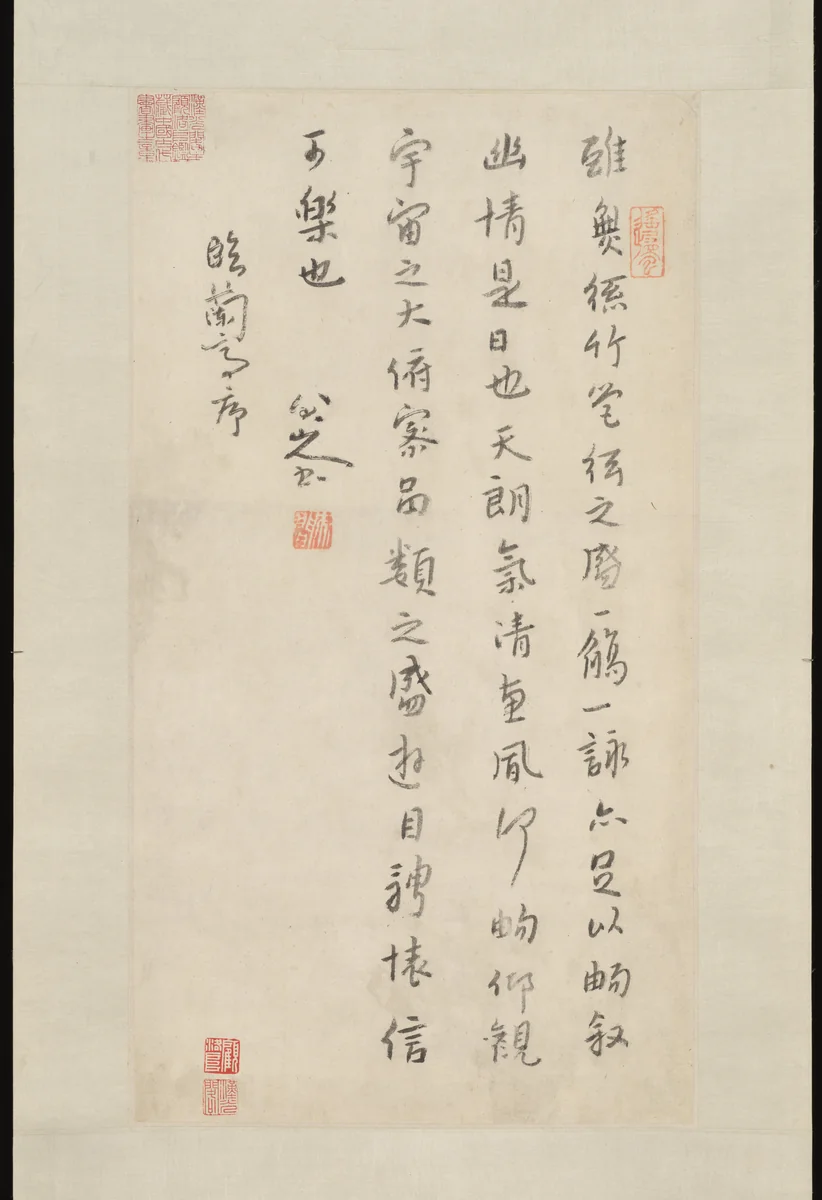 雖無絲竹筦弦之盛一觴一詠亦足以暢敘
幽情是日也天朗氣清惠風和暢仰觀
宇宙之大俯察品類之盛遊目騁懷信
可樂也
八大山人
臨蘭亭序